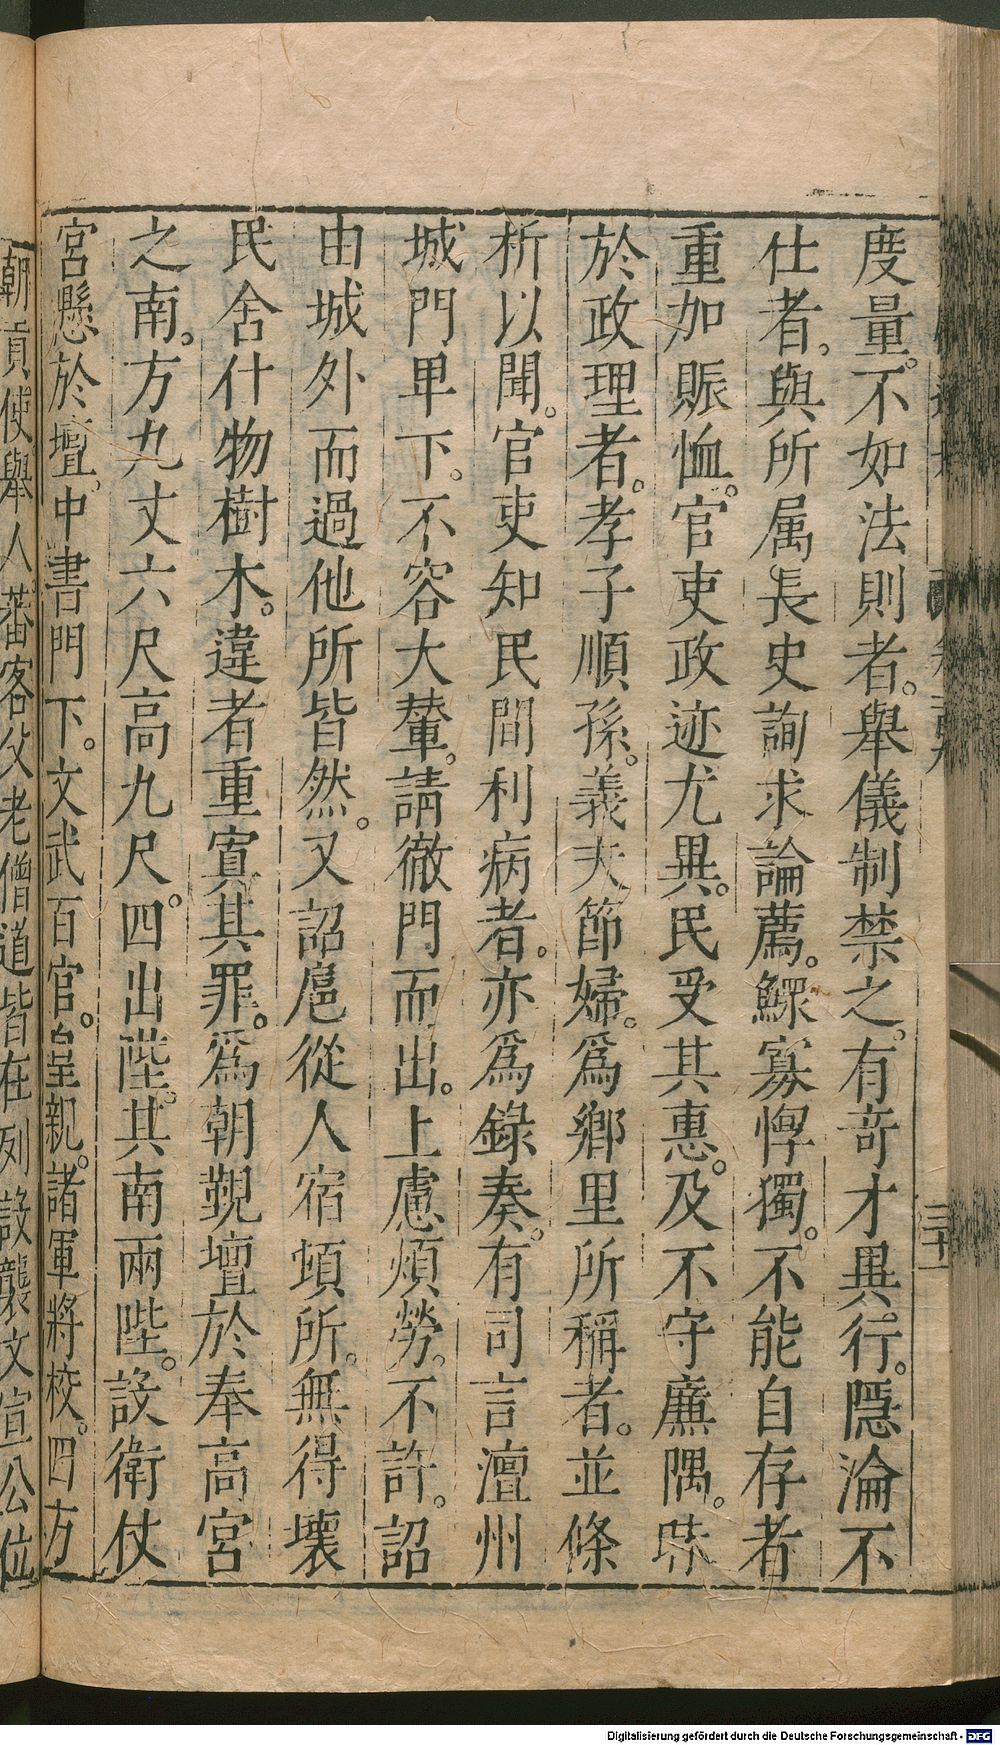 度量。不如法則者。舉儀制禁之。有竒才異行。隱淪不
仕者。與所属長史詢求論薦。鰥寡惸獨。不能自存者
重加賑恤。官吏政迹尤異。民受其惠。及不守廉隅。昧
於政理者。孝子順孫。義夫節婦。為鄉里所稱者。並條
析以聞。官吏知民間利病者。亦為錄奏。有司言澶州
城門卑下。不容大輦。請徹門而出。上慮煩勞。不許。詔
由城外而過他所皆然。又詔扈從人宿頓所。無得壞
民舍什物樹木。違者重寘其罪。為朝覲壇於奉高宮
之南。方九丈六尺高九尺。四出陛。其南兩陛。設衛仗
宮懸於壇。中書門下。文武百官。皇親。諸軍將校。四方
朝貢使舉人蕃客父老僧道皆在列設襲文宣公位
三十一
Digitalisierung gefördert durch die Deutsche Forschungsgemeinschaft - DFG